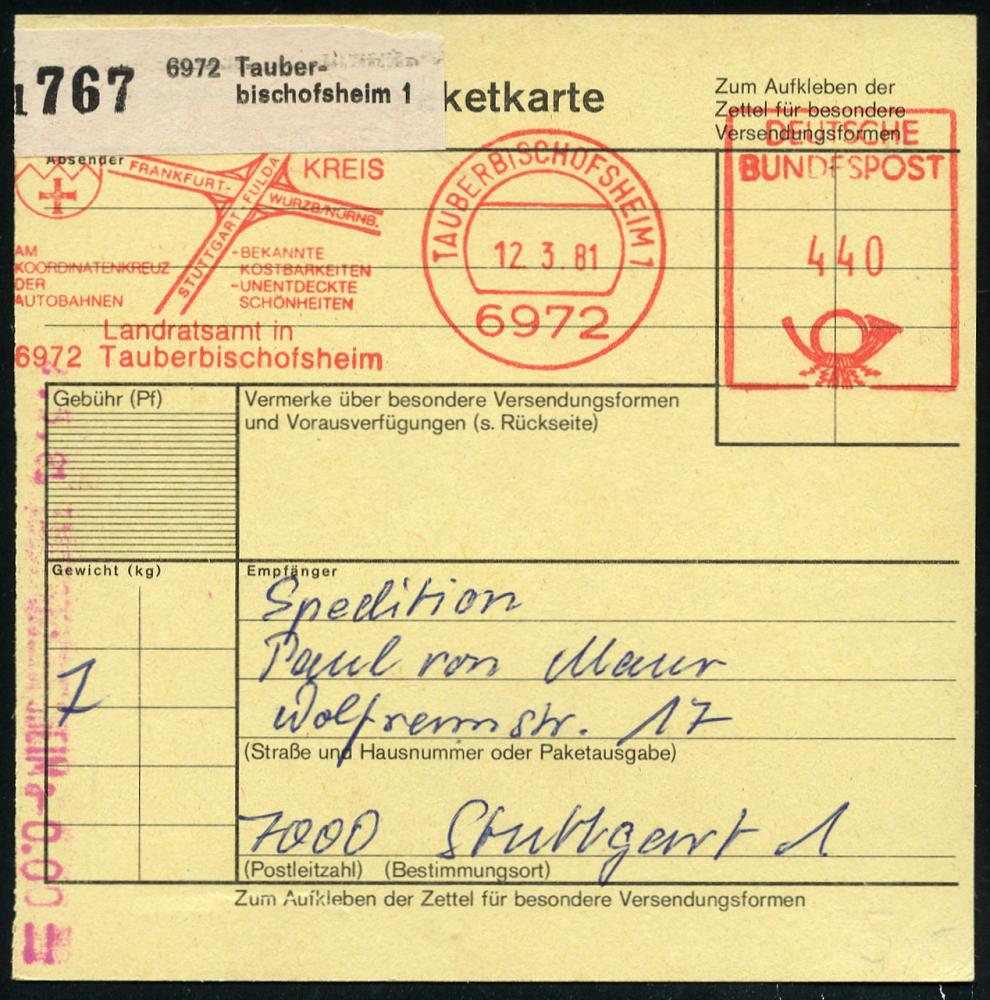 767
6972 Tauber-
bischofsheim 1
ketkarte
Zum Aufkleben der
Zettel für besondere
Versendungsformen
Absender
FRANKFURT-
WÜRZB/NÜRNB.
STUTTGART-FULDA
KREIS
AM
KOORDINATENKREUZ
DER
AUTOBAHNEN
-BEKANNTE
KOSTBARKEITEN
-UNENTDECKTE
SCHÖNHEITEN
Landratsamt in
6972 Tauberbischofsheim
TAUBERBISCHOFSHEIM 1
12.3.81
6972
DEUTSCHE
BUNDESPOST
440
Gebühr (Pf)
Vermerke über besondere Versendungsformen
und Vorausverfügungen (s. Rückseite)
Gewicht (kg)
7
Empfänger
Spedition
Paul von Maur
Wolframstr. 17
(Straße und Hausnummer oder Paketausgabe)
7000 Stuttgart 1
(Postleitzahl) (Bestimmungsort)
Zum Aufkleben der Zettel für besondere Versendungsformen